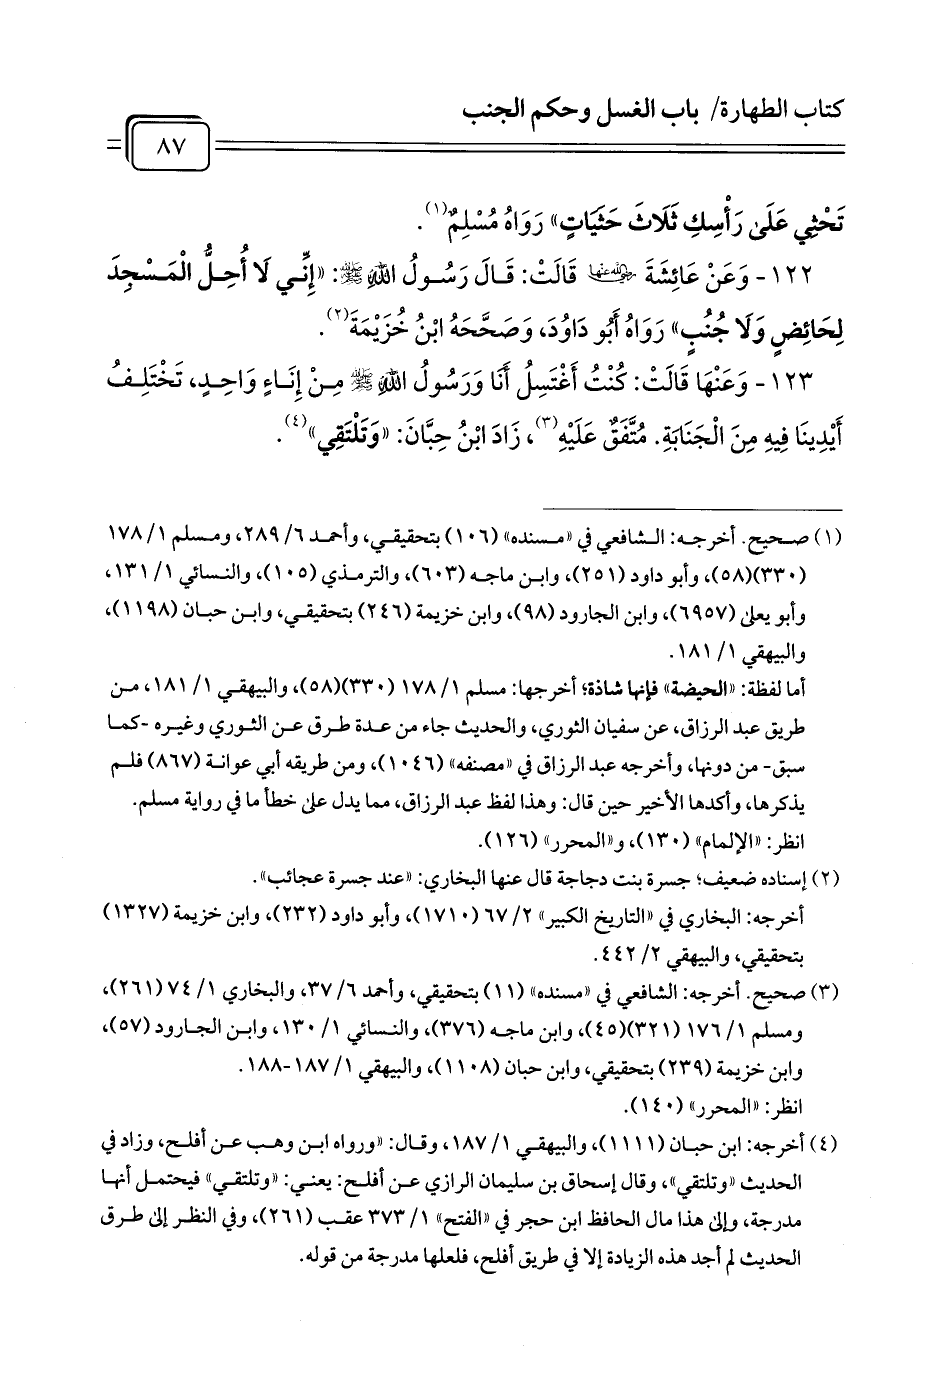 كتاب الطهارة/ باب الغسل وحكم الجنب
٨٧
تَحْثِي عَلَىٰ رَأْسِكِ ثَلَاثَ حَثَيَاتٍ» رَوَاهُ مُسْلِمٌ(١).
١٢٢- وَعَنْ عَائِشَةَ رضي الله عنها قَالَتْ: قَالَ رَسُولُ اللهِ ﷺ: «إِنِّي لَا أُحِلُّ الْمَسْجِدَ
لِحَائِضٍ وَلَا جُنُبٍ» رَوَاهُ أَبُو دَاوُدَ، وَصَحَّحَهُ ابْنُ خُزَيْمَةَ(٢).
١٢٣- وَعَنْهَا قَالَتْ: كُنْتُ أَغْتَسِلُ أَنَا وَرَسُولُ اللهِ ﷺ مِنْ إِنَاءٍ وَاحِدٍ، تَخْتَلِفُ
أَيْدِينَا فِيهِ مِنَ الْجَنَابَةِ. مُتَّفَقٌ عَلَيْهِ(٣)، زَادَ ابْنُ حِبَّانَ: «وَتَلْتَقِي»(٤).
(١) صحيح. أخرجه: الشافعي في «مسنده» (١٠٦) بتحقيقي، وأحمد ٦/ ٢٨٩، ومسلم ١/ ١٧٨
(٣٣٠)(٥٨)، وأبو داود (٢٥١)، وابن ماجه (٦٠٣)، والترمذي (١٠٥)، والنسائي ١/ ١٣١،
وأبو يعلى (٦٩٥٧)، وابن الجارود (٩٨)، وابن خزيمة (٢٤٦) بتحقيقي، وابن حبان (١١٩٨)،
والبيهقي ١/ ١٨١.
أما لفظة: «الحيضة» فإنها شاذة؛ أخرجها: مسلم ١/ ١٧٨ (٣٣٠)(٥٨)، والبيهقي ١/ ١٨١، من
طريق عبد الرزاق، عن سفيان الثوري، والحديث جاء من عدة طرق عن الثوري وغيره -كما
سبق- من دونها، وأخرجه عبد الرزاق في «مصنفه» (١٠٤٦)، ومن طريقه أبي عوانة (٨٦٧) فلم
يذكرها، وأكدها الأخير حين قال: وهذا لفظ عبد الرزاق، مما يدل على خطأ ما في رواية مسلم.
انظر: «الإلمام» (١٣٠)، و«المحرر» (١٢٦).
(٢) إسناده ضعيف؛ جسرة بنت دجاجة قال عنها البخاري: «عند جسرة عجائب».
أخرجه: البخاري في «التاريخ الكبير» ٢/ ٦٧ (١٧١٠)، وأبو داود (٢٣٢)، وابن خزيمة (١٣٢٧)
بتحقيقي، والبيهقي ٢/ ٤٤٢.
(٣) صحيح. أخرجه: الشافعي في «مسنده» (١١) بتحقيقي، وأحمد ٦/ ٣٧، والبخاري ١/ ٧٤ (٢٦١)،
ومسلم ١/ ١٧٦ (٣٢١)(٤٥)، وابن ماجه (٣٧٦)، والنسائي ١/ ١٣٠، وابن الجارود (٥٧)،
وابن خزيمة (٢٣٩) بتحقيقي، وابن حبان (١١٠٨)، والبيهقي ١/ ١٨٧-١٨٨.
انظر: «المحرر» (١٤٠).
(٤) أخرجه: ابن حبان (١١١١)، والبيهقي ١/ ١٨٧، وقال: «ورواه ابن وهب عن أفلح، وزاد في
الحديث «وتلتقي»، وقال إسحاق بن سليمان الرازي عن أفلح: يعني: «وتلتقي» فيحتمل أنها
مدرجة، وإلى هذا مال الحافظ ابن حجر في «الفتح» ١/ ٣٧٣ عقب (٢٦١)، وفي النظر إلى طرق
الحديث لم أجد هذه الزيادة إلا في طريق أفلح، فلعلها مدرجة من قوله.